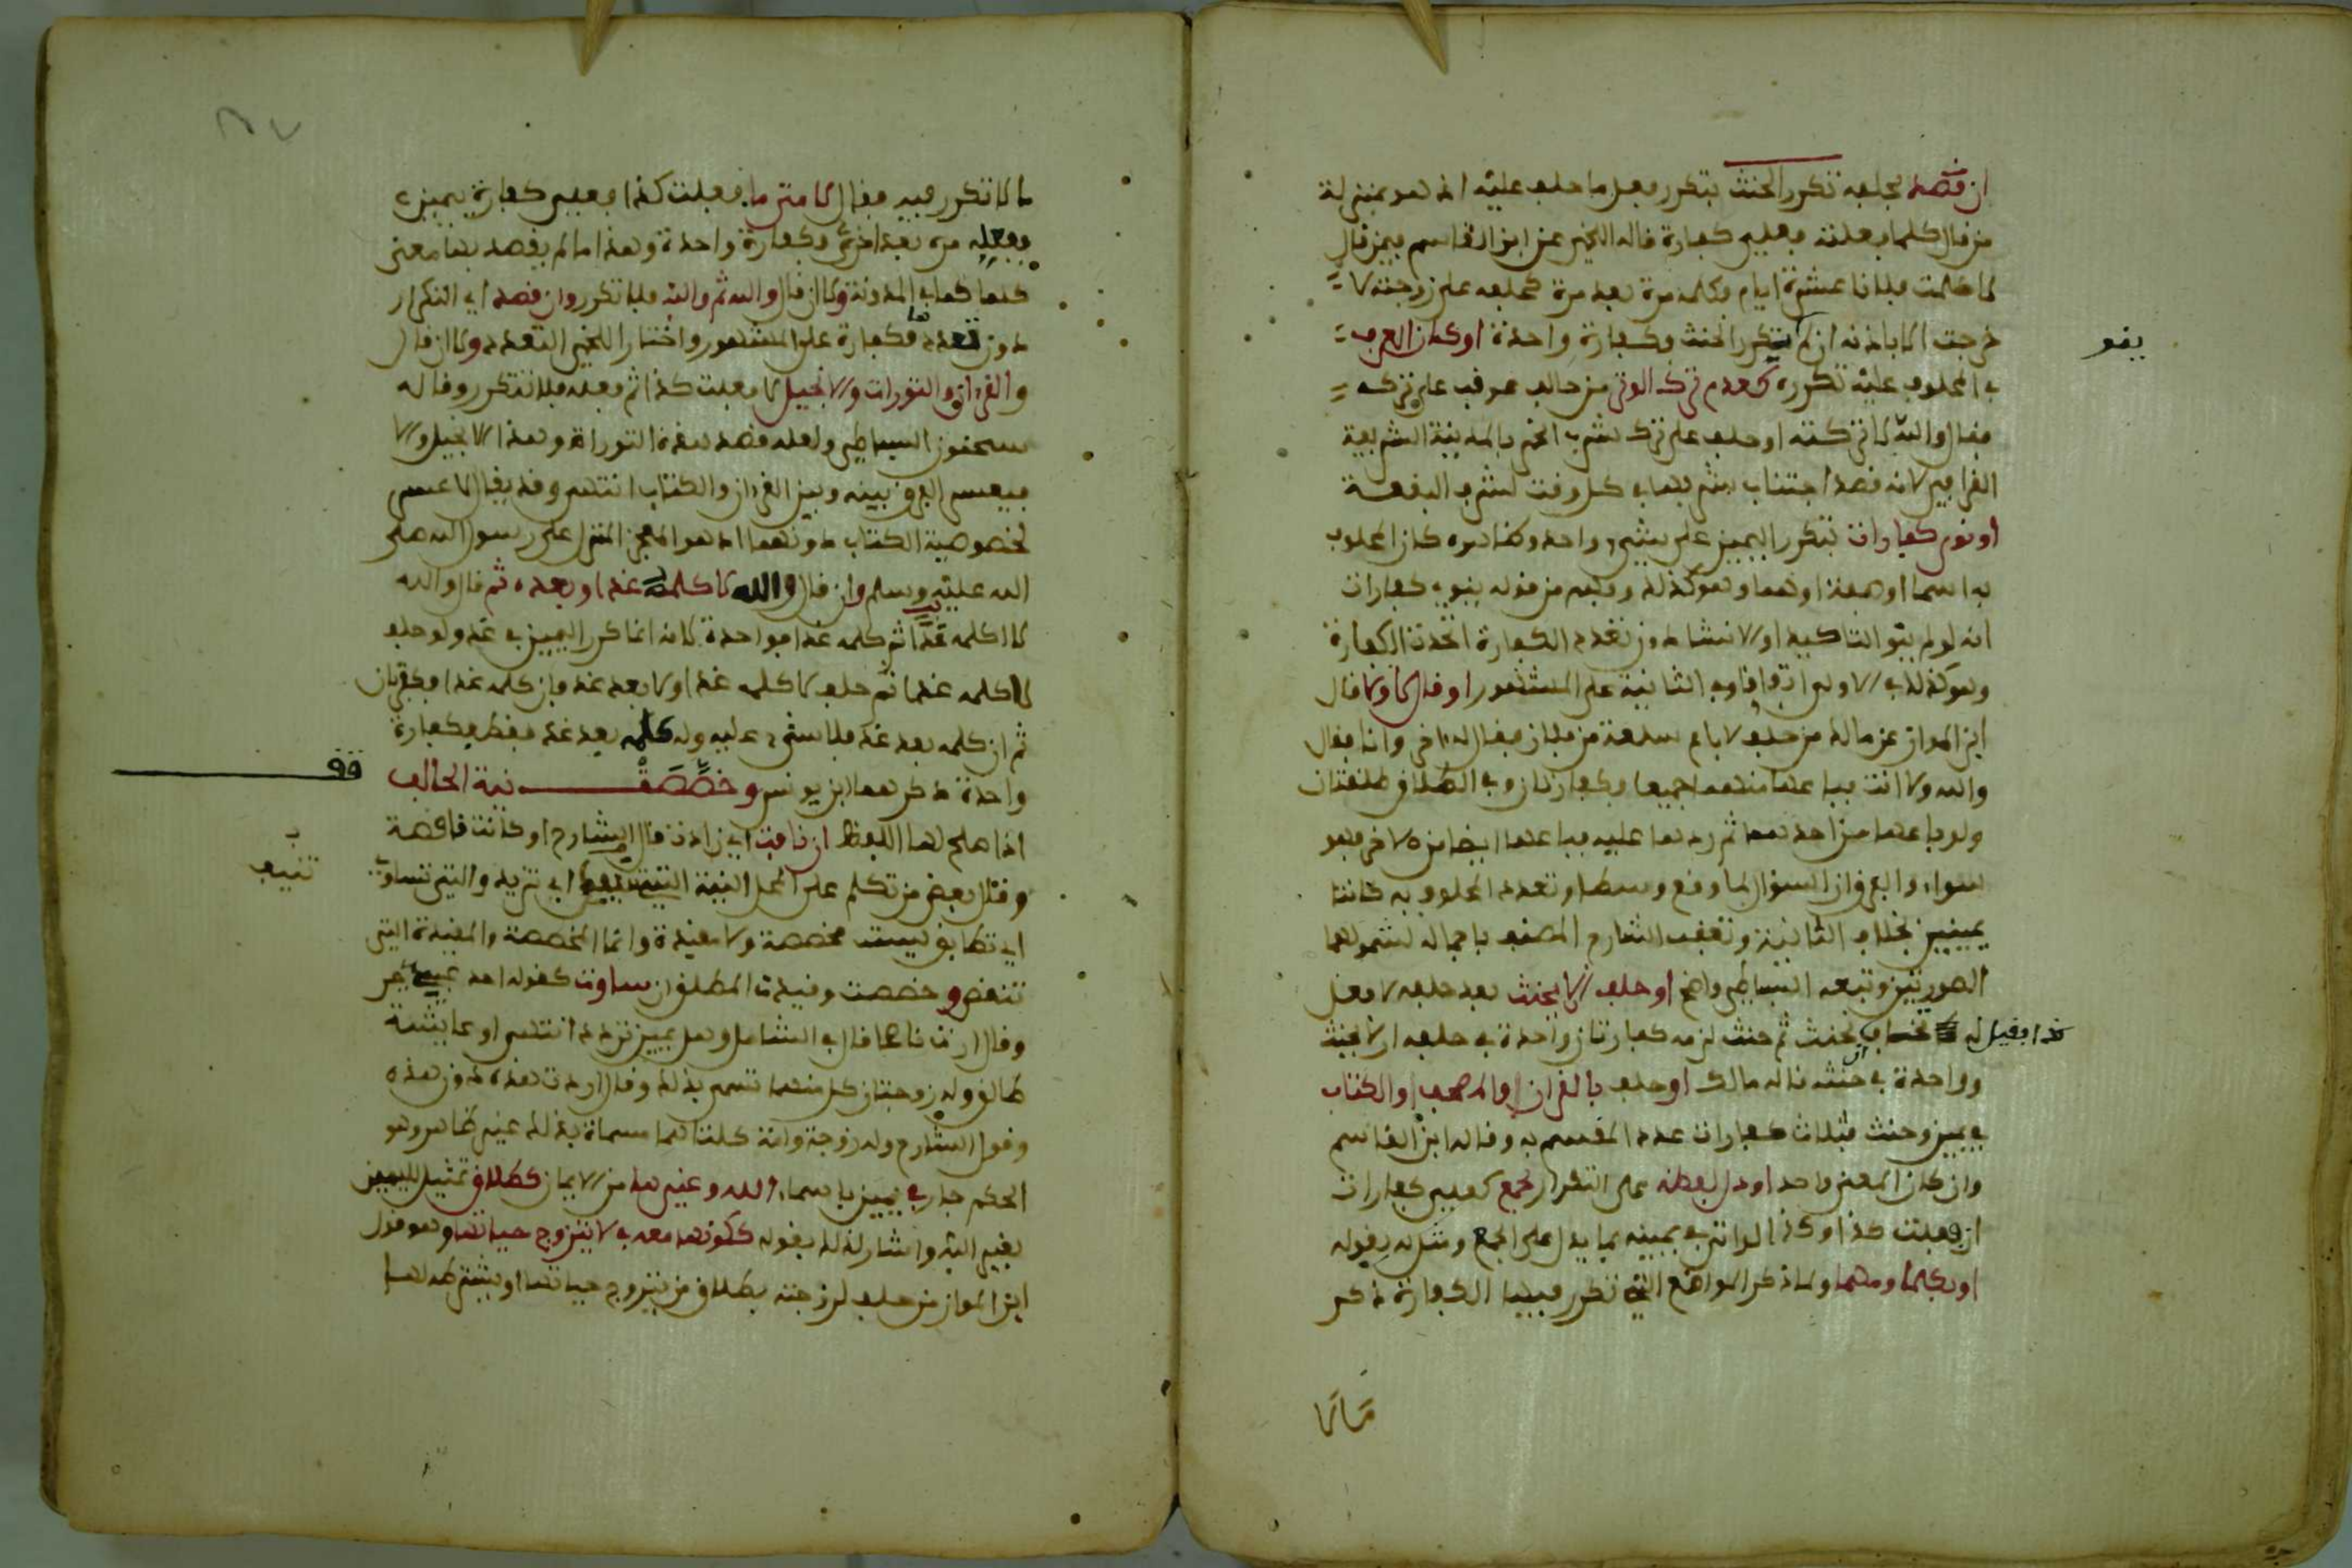 ان قصد بحلفه تكرر الحنث بتكرر فعل ما حلف عليه اذ هو بمنزلة
من قال كلما فعلته فعلي كفارة قاله اللخمي عن ابن القاسم فيمن قال
لا كلمت فلانا عشرة ايام فكلمه مرة بعد مرة كحلفه على زوجته لا
خرجت الا باذنه ان لم يتكرر الحنث فكفارة واحدة او كان العرف
يفو
في المحلوف عليه تكرره كعدم ترك الوتر من حالف عوقب على تركه
فقال والله لا تركته او حلف على ترك شرب الخمر بالمدينة الشريفة
القرافي لانه قصد اجتناب شربها في كل وقت لشرف البقعة
او نوى كفارات بتكرر اليمين على شيء واحد وظاهره كان المحلوف
به اسما او صفة او هما وهو كذلك وفهم من قوله ينوي كفارات
انه لو لم ينو التاكيد او الانشاء دون تعدد الكفارة اتحدت الكفارة
وهو كذلك في الاولى اتفاقا وفي الثانية على المشهور او قال لا ولا قال
ابن المواز عن مالك من حلف لا باع سلعة من فلان فقال له اخر وانا فقال
والله ولا انت فباعها منهما جميعا فكفارتان وفي الطلاق طلقتان
ولو باعها من احدهما ثم ردها عليه فباعها ايضا من الاخر فهو
سواء والفرق ان السؤال لما وقع وسطا وتعدد المحلوف به كانتا
يمينين بخلاف الثانية وتعقب الشارح المصنف باجماله لشمولهما
الصورتين وتبعه البساطي واضح او حلف ان لا يحنث بعد حلفه لا فعل
كذا فقيل له تحنث ثم حنث لزمه كفارتان واحدة في حلفه ان لا يحنث
وواحدة في حنثه قاله مالك او حلف بالقران والمصحف والكتاب
في يمين وحنث فثلاث كفارات عدد المقسم به وقاله ابن القاسم
وان كان المعنى واحد او دل لفظه على التكرار بجمع كعلي كفارات
ان فعلت كذا او كذا الواتى في يمينه بما يدل على الجمع ومثله بقوله
او بكلما ومهما ولما ذكر المواضع التي تكرر فيها الكفارة ذكر
مالا
ما لا تكرر فيه فقال لا متى ما فعلت كذا فعلي كفارة يمين
ففعله مرة بعد اخرى فكفارة واحدة وهذا ما لم يقصد بها معنى
كلما كما في المدونة ولا ان قال والله ثم والله فلا تكرر وان قصد اي التكرار
دون تعددها فكفارة على المشهور واختار اللخمي التعدد ولا ان قال
والقران والتورات والانجيل لا فعلت كذا ثم فعله فلا تتكرر وقاله
سحنون البساطي ولعله قصد بهذه التوراة وهذا الانجيل والا
فيعسر الفرق بينه وبين القران والكتاب انتهى وقد يقال لا عسر
لخصوصية الكتاب دونهما اذ هو المعجز المنزل على رسول الله صلى
الله عليه وسلم وان قال والله لا كلمه غدا وبعده ثم قال والله
لا اكلمه غدا ثم كلمه غدا فواحدة لانه انما كرر اليمين في غد ولو حلف
لا اكلمه غدا ثم حلف لا كلمه غدا ولا بعد غد فان كلمه غدا فكفرتان
ثم ان كلمه بعد غد فلا شيء عليه ولو كلمه بعد غد فقط فكفارة
واحدة ذكرهما ابن يونس وخصصت نية الحالف
قف
اذا صلح لها اللفظ ان نافت اي زادت قال الشارح او كانت ناقصة
تنبيه
وقال بعض من تكلم على المحل النية التي اي تزيد والتي تساوي
اي تطابق ليست مخصصة ولا مقيدة وانما المخصصة والمقيدة التي
تنقص وخصصت وقيدت المطلق ان ساوت كقوله احد عبيدي حر
وقال اردت ناصحا قال في الشامل وهل بيمين تردد انتهى او عايشة
طالق وله زوجتان كل منهما تسمى بذلك وقال اردت هذه دون هذه
وقول الشارح وله زوجة وامة كلتاهما مسماة بذلك غير ظاهر وهو
الحكم جار في يمين باسماء الله وغيرها من الايمان كطلاق تمثيل لليمين
بغير الله واشار لذلك بقوله ككونها معه في لا يتزوج حياتها وهو قول
ابن المواز من حلف لزوجته بطلاق من يتزوج حياتها او يشترطه لها